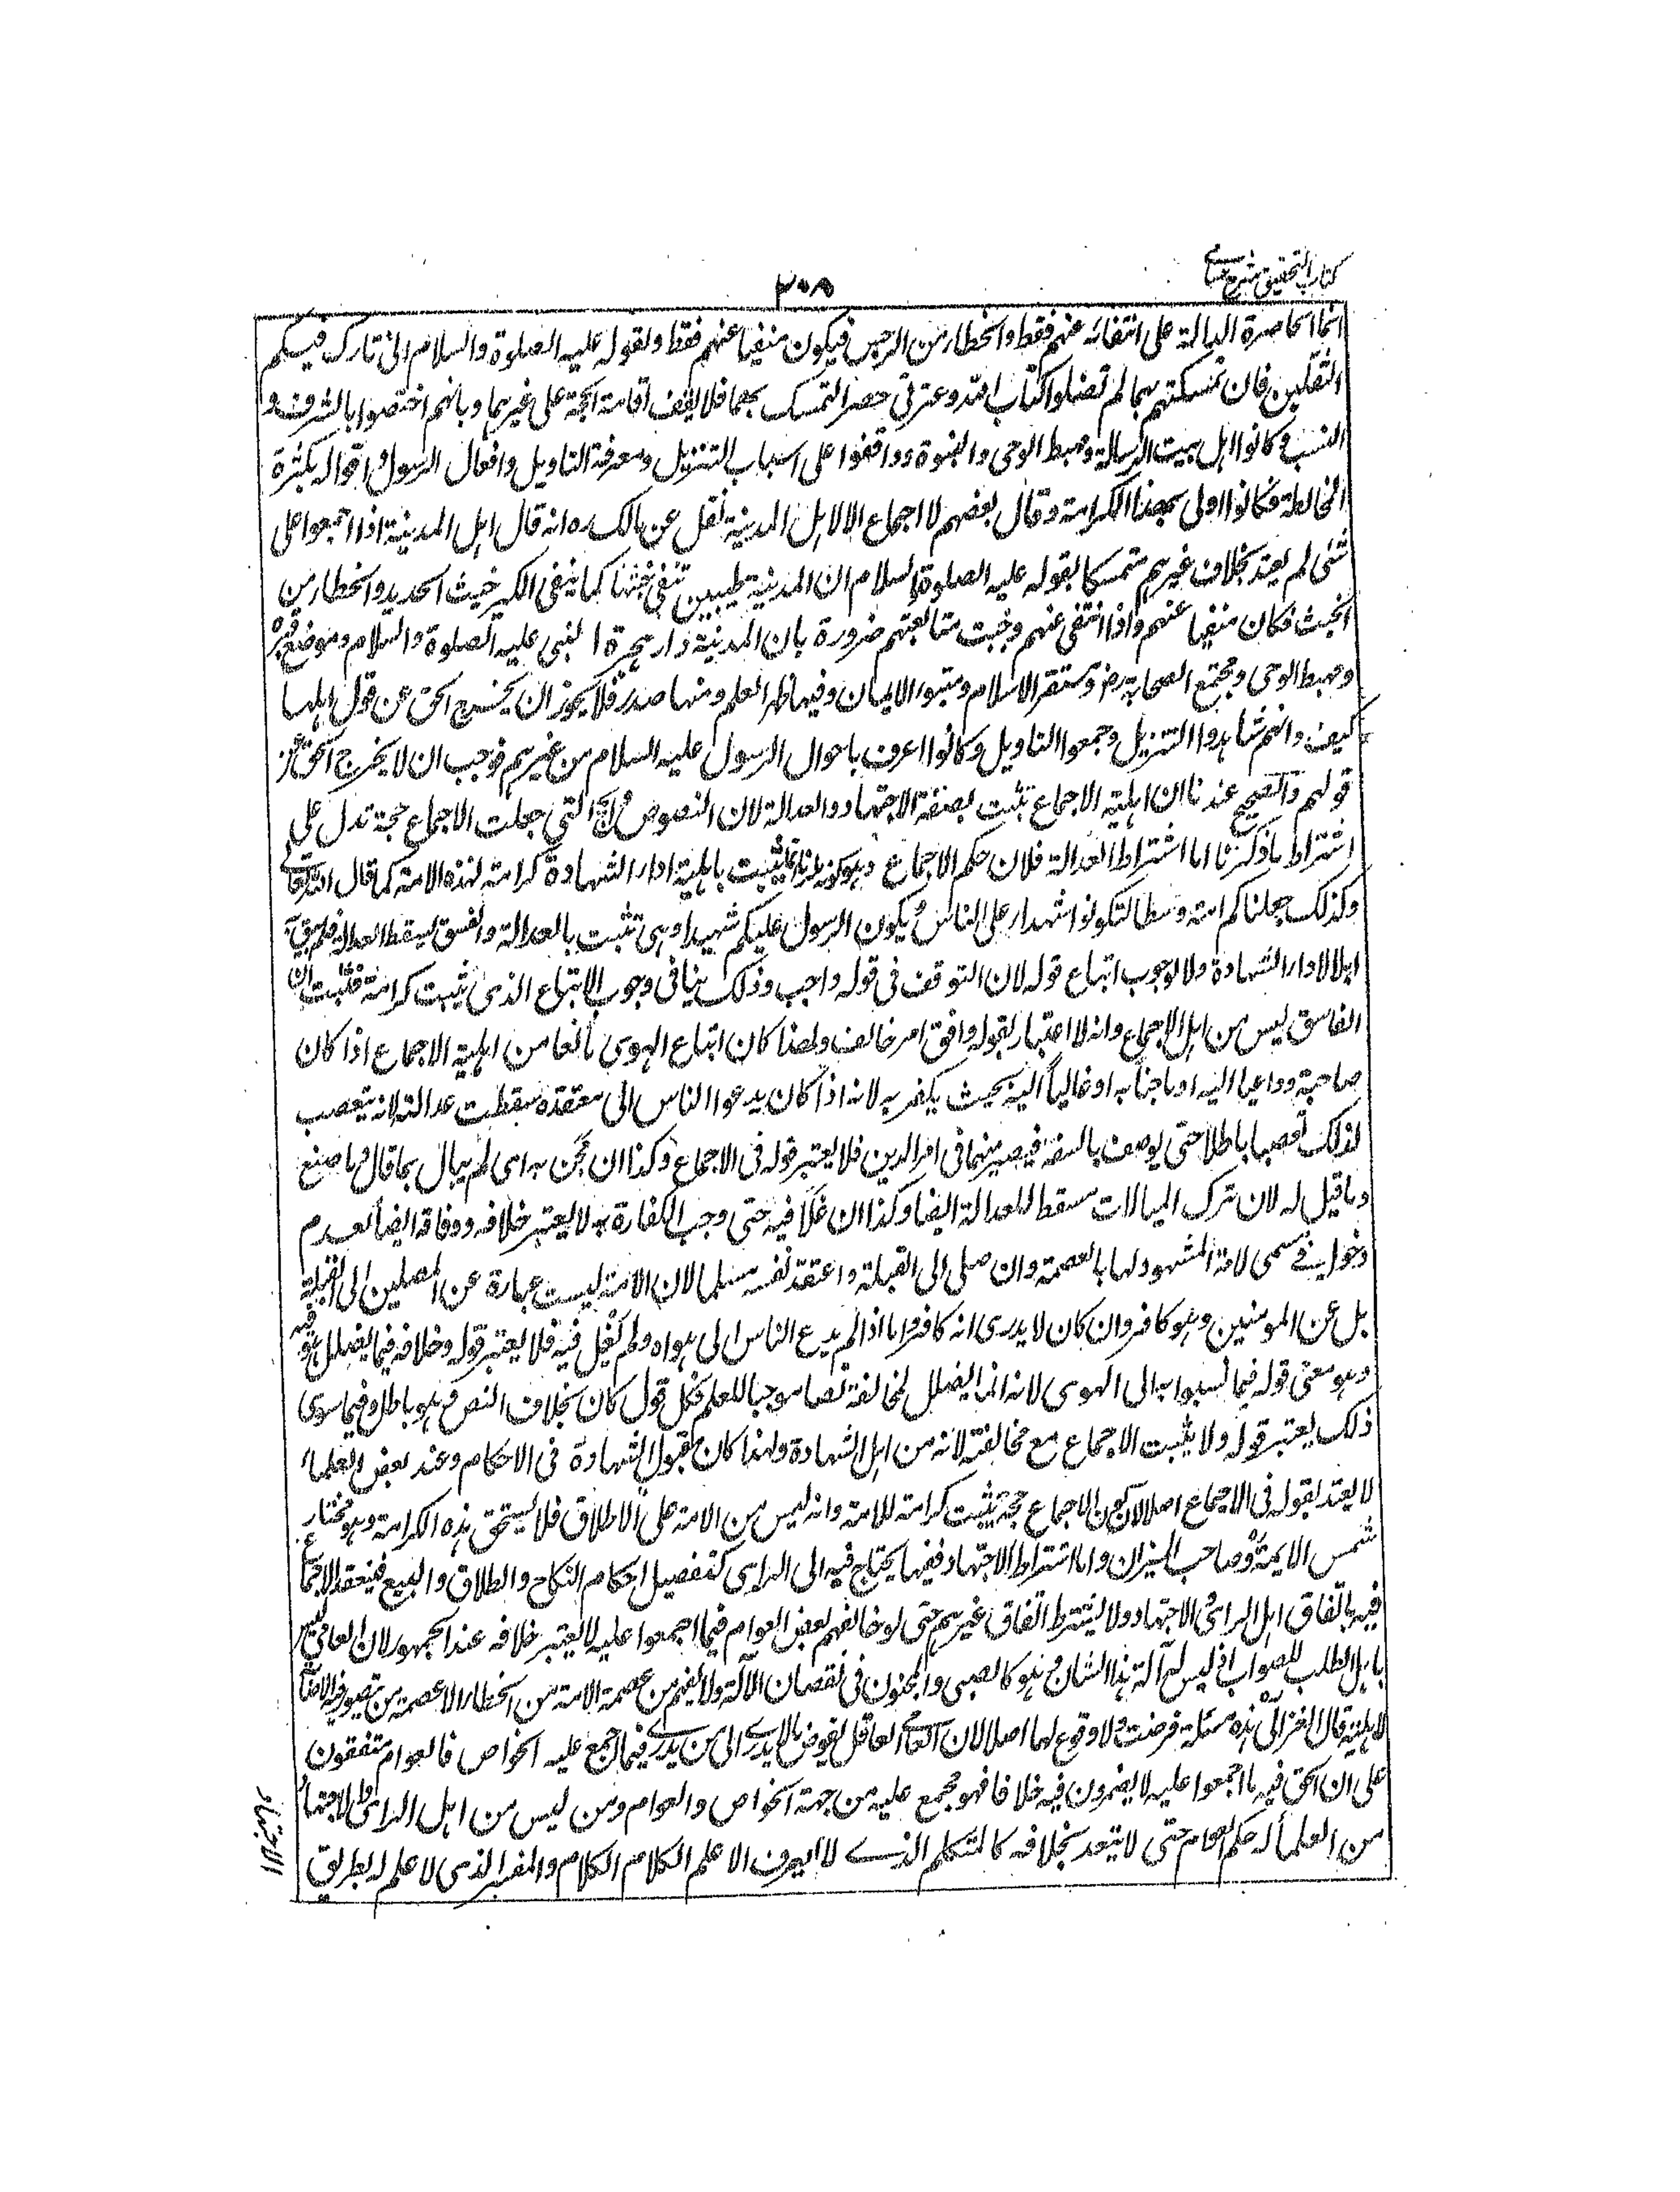 كتاب التحقيق شرح حسامى
٢٠٨
انما الحاصرة الدالة على انتفائه عنهم فقط والخطاء من الرجس فيكون منفيا عنهم فقط ولقوله عليه الصلوة والسلام انى تارك فيكم
الثقلين فان تمسكتم بهما لم تضلوا كتاب الله وعترتى حصر التمسك بهما فلا يقف اقامة الحجة على غيرهما وبانهم اختصوا بالشرف و
النسب وكانوا اهل بيت الرسالة ومهبط الوحى والنبوة ووقفوا على اسباب التنزيل ومعرفة التاويل وافعال الرسول واقواله بكثرة
المخالطة فكانوا اولى بهذا الكرامة وقال بعضهم لا اجماع الا لاهل المدينة نقل عن مالك ره انه قال اهل المدينة اذا اجمعوا على
شئى لم يعتد بخلاف غيرهم متمسكا بقوله عليه الصلوة والسلام ان المدينة طيبة تنفى خبثها كما ينفى الكير خبث الحديد والخطاء من
الخبث فكان منفيا عنهم واذا انتفى عنهم وجبت متابعتهم ضرورة بان المدينة دار هجرة النبى عليه الصلوة والسلام وموضع قبره
ومهبط الوحى ومجمع الصحابة رض ومستقر الاسلام ومتبوء الايمان وفيها ظهر العلم ومنها صدر فلا يجوز ان يخرج الحق عن قول اهلها
كيف وانهم شاهدوا التنزيل وجمعوا التاويل وكانوا اعرف باحوال الرسول عليه السلام من غيرهم فوجب ان لا يخرج الحق عن
قولهم والصحيح عندنا ان اهلية الاجماع تثبت بصفة الاجتهاد والعدالة لان النصوص والحجج التى جعلت الاجماع حجة تدل على
اشتراط ما ذكرنا اما اشتراط العدالة فلان حكم الاجماع وهو كونه ملزما انما يثبت باهلية اداء الشهادة كرامة لهذه الامة كما قال الله تعالى
وكذلك جعلناكم امة وسطا لتكونوا شهداء على الناس ويكون الرسول عليكم شهيدا وهى تثبت بالعدالة والفسق يسقط العدالة فلم يبق به
اهلا لاداء الشهادة ولا لوجوب اتباع قوله لان التوقف فى قوله واجب وذلك ينافى وجوب الاتباع الذى يثبت كرامة فثبت ان
الفاسق ليس من اهل الاجماع وانه لا اعتبار بقوله وافق ام خالف ولهذا كان اتباع الهوى مانعا من اهلية الاجماع اذا كان
صاحبه وداعيا اليه او ماجنا به او غاليا اليه بحيث يكفر به لانه اذا كان يدعوا الناس الى معتقده سقطت عدالته لانه يتعصب
لذلك تعصبا باطلا حتى يوصف بالسفه فيصير متهما فى امر الدين فلا يعتبر قوله فى الاجماع وكذا ان مجن به اى لم يبال بما قال وما صنع
وما قيل له لان ترك المبالات مسقط للعدالة ايضا وكذا ان غلا فيه حتى وجب اكفاره به لا يعتبر خلافه ووفاقه ايضا لعدم
دخوله فى مسمى لامة المشهود لها بالعصمة وان صلى الى القبلة واعتقد نفسه مسلما لان الامة ليست عبارة عن المصلين الى القبلة
بل عن المومنين وهو كافر وان كان لا يدرى انه كافر واما اذا لم يدع الناس الى هواه ولم يغل فيه فلا يعتبر قوله وخلافه فيما يضلل هو فيه
وهو معنى قوله فيما نسبوا به الى الهوى لانه انما يضلل لمخالفة نصا موجبا للعلم فكل قول كان بخلاف النص فهو باطل وفيما سوى
ذلك يعتبر قوله ولا يثبت الاجماع مع مخالفته لانه من اهل الشهادة ولهذا كان مقبول الشهادة فى الاحكام وعند بعض العلماء
لا يعتد بقوله فى الاجماع اصلا لان كون الاجماع حجة يثبت كرامة للامة وانه ليس من الامة على الاطلاق فلا يستحق هذه الكرامة وهو مختار
شمس الايمة وصاحب الميزان واما اشتراط الاجتهاد ففيما يحتاج فيه الى الراى كتفصيل احكام النكاح والطلاق والبيع فينعقد الاجماع
فيه باتفاق اهل الراى والاجتهاد ولا يشترط اتفاق غيرهم حتى لو خالفهم بعض العوام فيما اجمعوا عليه لا يعتبر خلافه عند الجمهور لان العامى ليس
باهل لطلب الصواب اذ ليس له آلة هذا الشان فهو كالصبى والمجنون فى نقصان الآلة ولا يفهم من عصمة الامة من الخطاء الا عصمة من يتصور فيه الاصابة
لاهلية قال الغزالى هذه مسئلة فرضت ولا وقوع لها اصلا لان العامى العاقل يفوض ما لا يدرى الى من يدرى فيما اجمع عليه الخواص فالعوام متفقون
على ان الحق فيه ما اجمعوا عليه لا يضمرون فيه خلافا فهو مجمع عليه من جهة الخواص والعوام ومن ليس من اهل الراى والاجتهاد
من العلماء له حكم العوام حتى لا يعتد بخلافه كالمتكلم الذى لا يعرف الا علم الكلام والمفسر الذى لا علم له بطريق
الاجتهاد